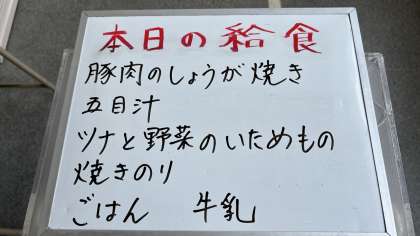 本日の給食
豚肉のしょうが焼き
五目汁
ツナと野菜のいためもの
焼きのり
ごはん　牛乳